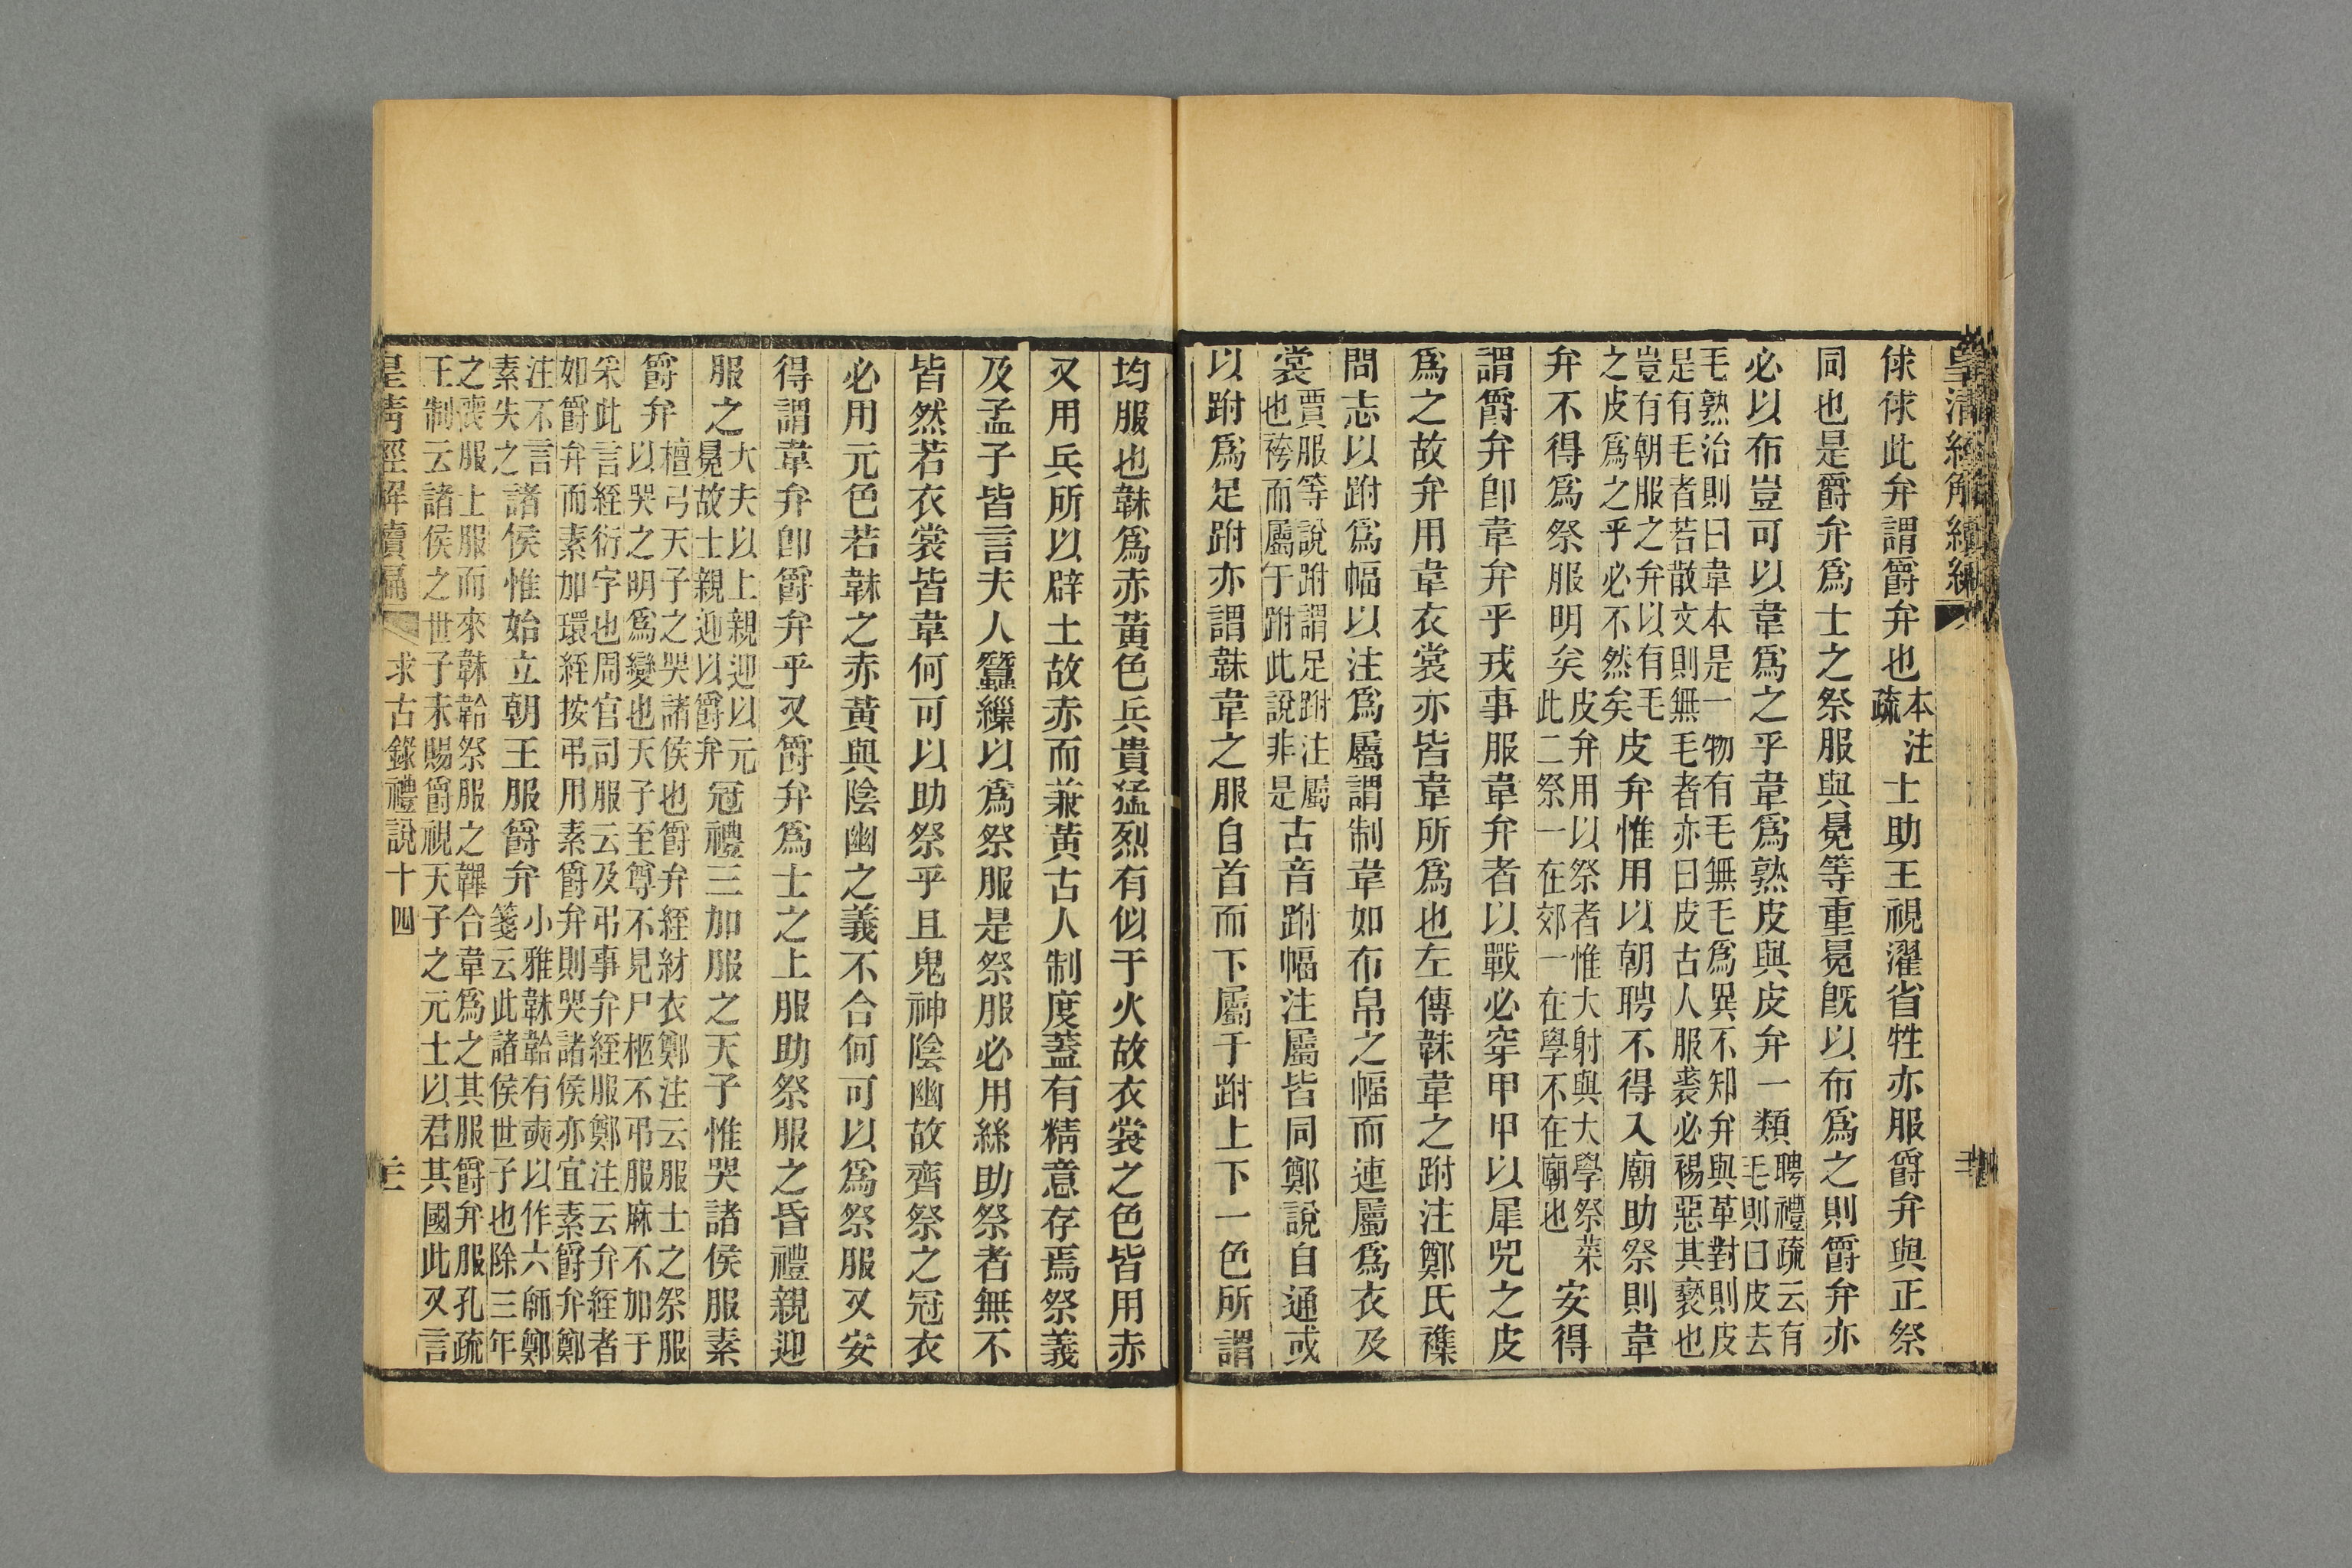 皇清經解續編
俅俅此弁謂爵弁也本注疏士助王視濯省牲亦服爵弁與正祭
同也是爵弁爲士之祭服與冕等重冕旣以布爲之則爵弁亦
必以布豈可以韋爲之乎韋爲熟皮與皮弁一類聘禮疏云有毛則曰皮去
毛熟治則曰韋本是一物有毛無毛爲異不知弁與革對則皮是有毛者若散文則無毛者亦曰皮古人服裘必裼惡其褻也
豈有朝服之弁以有毛之皮爲之乎必不然矣皮弁惟用以朝聘不得入廟助祭則韋
弁不得爲祭服明矣皮弁用以祭者惟大射與大學祭菜此二祭一在郊一在學不在廟也安得
謂爵弁卽韋弁乎戎事服韋弁者以戰必穿甲甲以犀兕之皮
爲之故弁用韋衣裳亦皆韋所爲也左傳韎韋之跗注鄭氏襍
問志以跗爲幅以注爲屬謂制韋如布帛之幅而連屬爲衣及
裳賈服等說跗謂足跗注屬也袴而屬于跗此說非是古音跗幅注屬皆同鄭說自通或
以跗爲足跗亦謂韎韋之服自首而下屬于跗上下一色所謂
均服也韎爲赤黃色兵貴猛烈有似于火故衣裳之色皆用赤
又用兵所以辟土故赤而兼黃古人制度蓋有精意存焉祭義
及孟子皆言夫人蠶繅以爲祭服是祭服必用絲助祭者無不
皆然若衣裳皆韋何可以助祭乎且鬼神陰幽故齊祭之冠衣
必用元色若韎之赤黃與陰幽之義不合何可以爲祭服又安
得謂韋弁卽爵弁乎又爵弁爲士之上服助祭服之昏禮親迎
服之大夫以上親迎以元冕故士親迎以爵弁冠禮三加服之天子惟哭諸侯服素
爵弁檀弓天子之哭諸侯也爵弁絰紂衣鄭注云服士之祭服以哭之明爲變也天子至尊不見尸柩不弔服麻不加于
采此言絰衍字也周官司服云及弔事弁絰服鄭注云弁絰者如爵弁而素加環絰按弔用素爵弁則哭諸侯亦宜素爵弁鄭
注不言素失之諸侯惟始立朝王服爵弁小雅韎韐有奭以作六師鄭箋云此諸侯世子也除三年
之喪服士服而來韎韐祭服之韠合韋爲之其服爵弁服孔疏王制云諸侯之世子未賜爵視天子之元士以君其國此又言
皇清經解續編　求古錄禮說十四